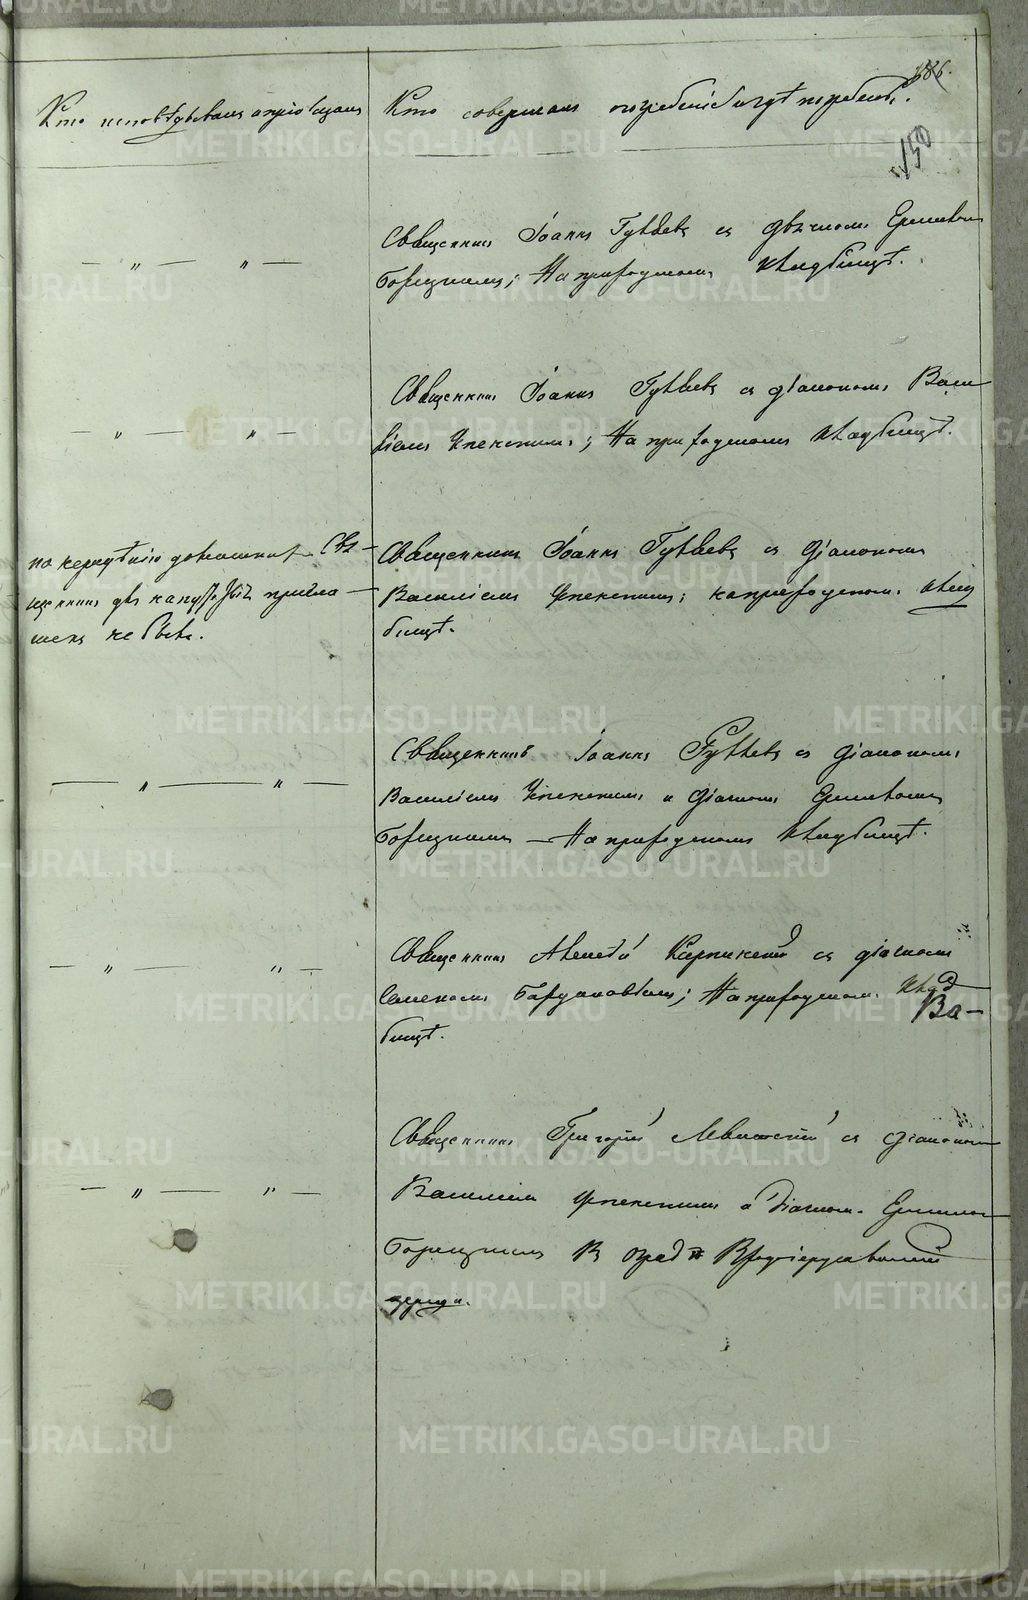 186.
150
Кто исповѣдывалъ и пріобщалъ
Кто совершалъ погребеніе и гдѣ погребены.
— „ — „ —
Священникъ Іоаннъ Гутѣевъ съ дьячкомъ
Борецкимъ; На приходскомъ кладбищѣ.
— „ — „ —
Священникъ Іоаннъ Гутѣевъ съ діакономъ Васи
ліемъ Успенскимъ; На приходскомъ кладбищѣ.
по нерадѣнію домашнихъ Свя-
щенникъ для напутствія пригла-
шенъ не былъ.
Священникъ Іоаннъ Гутѣевъ съ діакономъ
Василіемъ Успенскимъ; на приходскомъ клад
бищѣ.
— „ — „ —
Священникъ Іоаннъ Гутѣевъ съ діакономъ
Василіемъ Успенскимъ и дьячкомъ
Борецкимъ — На приходскомъ кладбищѣ.
— „ — „ —
Священникъ Алексѣй Карпинскій съ дьячкомъ
Семеномъ; На приходскомъ клад
Ва-
бищѣ.
— „ — „ —
Священникъ Григорій Левитскій съ діакономъ
Василіемъ Успенскимъ и дьячкомъ
Борецкимъ Въ оградѣ
церкви.
METRIKI.GASO-URAL.RU